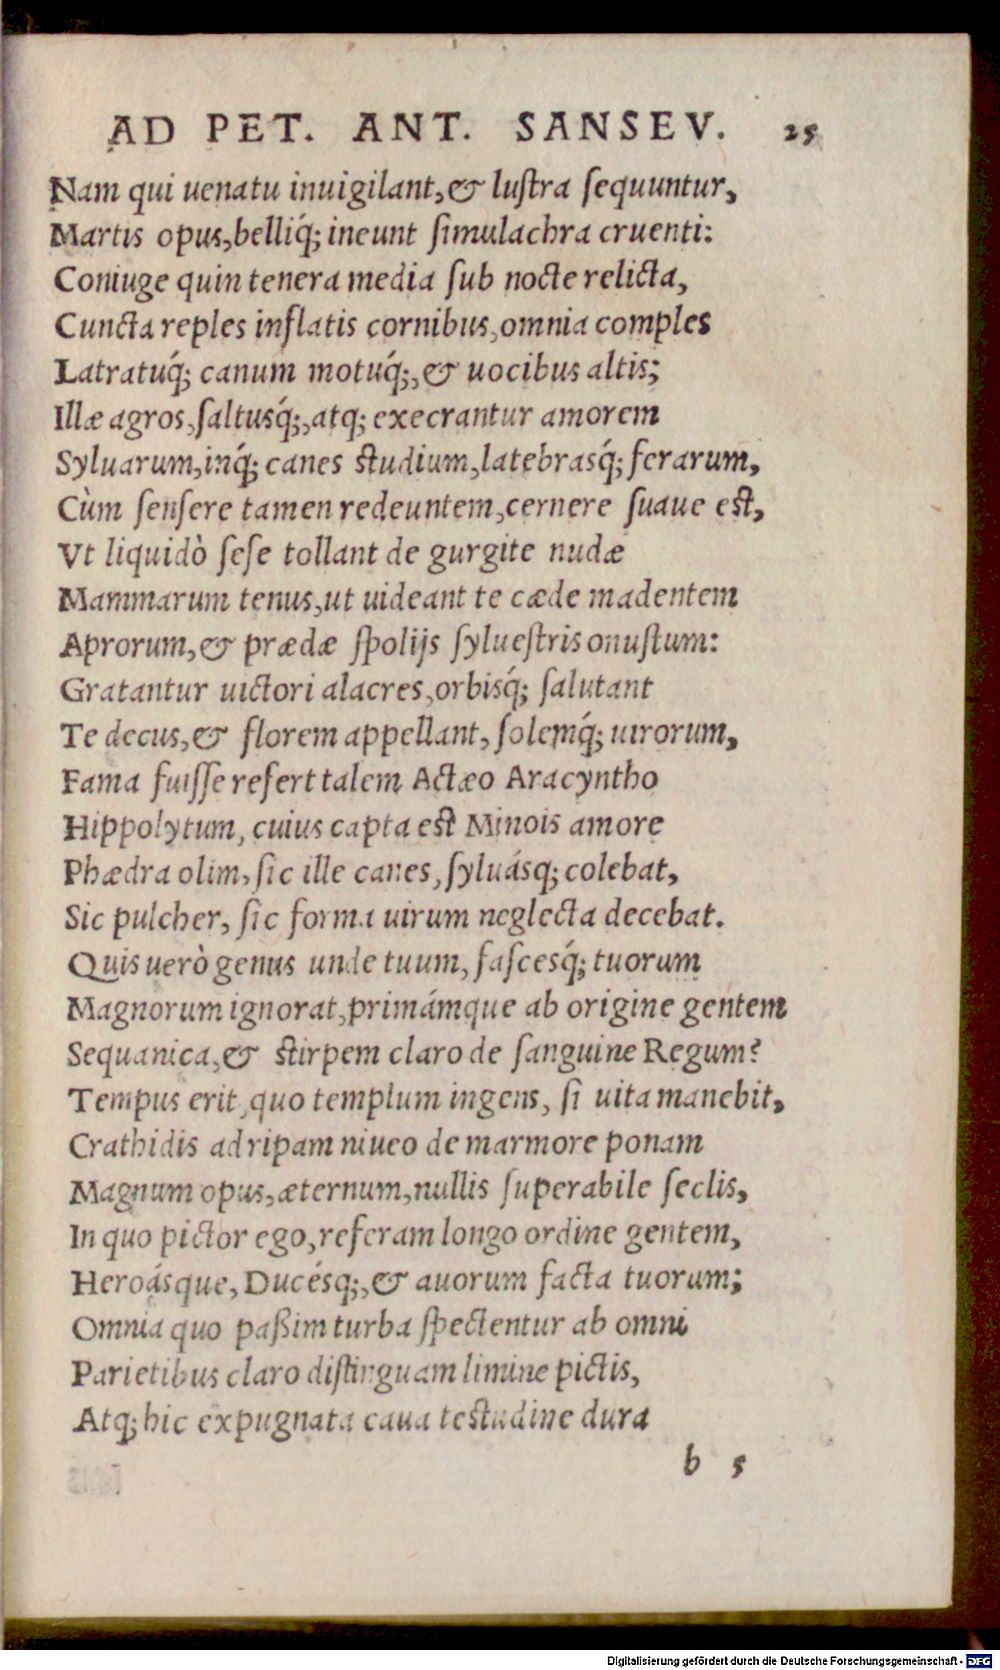 AD PET. ANT. SANSEV. 25
Nam qui uenatu inuigilant,& lustra sequuntur,
Martis opus,belliq́; ineunt simulachra cruenti:
Coniuge quin tenera media sub nocte relicta,
Cuncta reples inflatis cornibus,omnia comples
Latratuq́; canum motuq́;,& uocibus altis;
Illæ agros,saltusq́;,atq; execrantur amorem
Syluarum,inq́; canes studium,latebrasq́; ferarum,
Cùm sensere tamen redeuntem,cernere suaue est,
Vt liquidò sese tollant de gurgite nudæ
Mammarum tenus,ut uideant te cæde madentem
Aprorum,& prædæ spolijs syluestris onustum:
Gratantur uictori alacres,orbisq́; salutant
Te decus,& florem appellant, solemq́; uirorum,
Fama fuisse refert talem Actæo Aracyntho
Hippolytum, cuius capta est Minois amore
Phædra olim, sic ille canes, syluásq; colebat,
Sic pulcher, sic forma uirum neglecta decebat.
Quis uerò genus unde tuum, fascesq́; tuorum
Magnorum ignorat,primámque ab origine gentem
Sequanica,& stirpem claro de sanguine Regum?
Tempus erit,quo templum ingens, si uita manebit,
Crathidis ad ripam niueo de marmore ponam
Magnum opus,æternum,nullis superabile seclis,
In quo pictor ego,referam longo ordine gentem,
Heroásque, Ducésq;,& auorum facta tuorum;
Omnia quo paßim turba spectentur ab omni
Parietibus claro distinguam limine pictis,
Atq; hic expugnata caua testudine dura
b 5
Digitalisierung gefördert durch die Deutsche Forschungsgemeinschaft - DFG